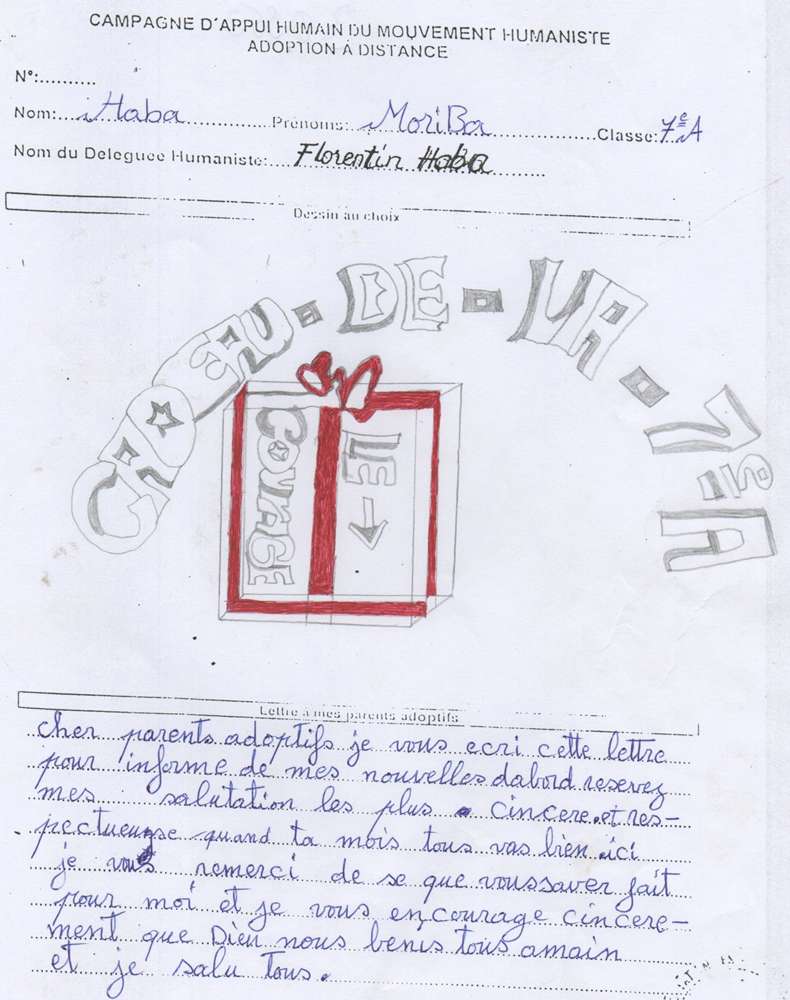 CAMPAGNE D'APPUI HUMAIN DU MOUVEMENT HUMANISTE
ADOPTION À DISTANCE
N°:..........
Nom: Haba Prénoms: MoriBa Classe: 7e A
Nom du Deleguee Humaniste: Florentin Haba
Dessin au choix
CADEAU-DE-LA-7e-A
COURAGE
LE
Lettre à mes parents adoptifs
cher parents adoptifs je vous ecri cette lettre
pour informe de mes nouvelles dabord reservez
mes salutation les plus cincere et res-
pectueuse quand ta mois tous vas bien ici
je vous remerci de se que vous saver fait
pour moi et je vous encourage cincere-
ment que Dieu nous benis tous amain
et je salu tous.